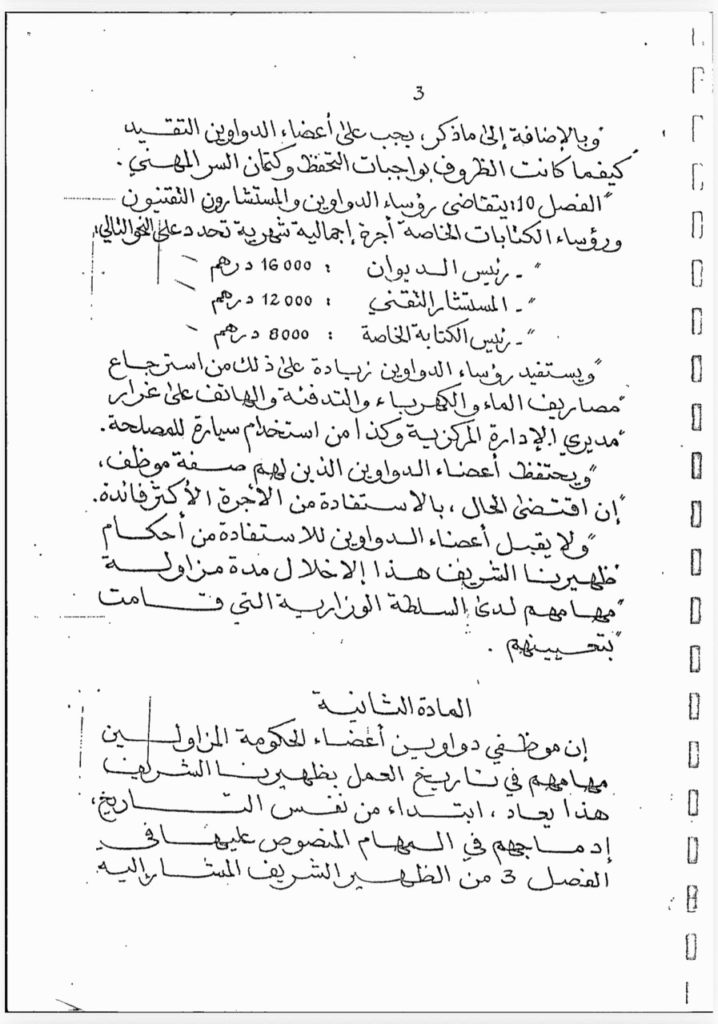 3
"وبالإضافة إلى ماذكر، يجب على أعضاء الدواوين التقيد
"كيفما كانت الظروف بواجبات التحفظ وكتمان السر المهني.
"الفصل 10: يتقاضى رؤساء الدواوين والمستشارون التقنيون
ورؤساء الكتابات الخاصة أجرة إجمالية شهرية تحدد على النحو التالي:
"- رئيس الديوان : 16000 درهم
"- المستشار التقني : 12000 درهم
"- رئيس الكتابة الخاصة : 8000 درهم
"ويستفيد رؤساء الدواوين زيادة على ذلك من استرجاع
"مصاريف الماء والكهرباء والتدفئة والهاتف على غرار
"مديري الإدارة المركزية وكذا من استخدام سيارة للمصلحة.
"ويحتفظ أعضاء الدواوين الذين لهم صفة موظف،
"إن اقتضى الحال، بالاستفادة من الأجرة الأكثر فائدة.
"ولا يقبل أعضاء الدواوين للاستفادة من أحكام
"ظهيرنا الشريف هذا إلا خلال مدة مزاولة
"مهامهم لدى السلطة الوزارية التي قامت
"بتعيينهم.
المادة الثانية
إن موظفي دواوين أعضاء الحكومة المزاولين
مهامهم في تاريخ العمل بظهيرنا الشريف
هذا يعاد، ابتداء من نفس التاريخ،
إدماجهم في المهام المنصوص عليها في
الفصل 3 من الظهير الشريف المشار إليه